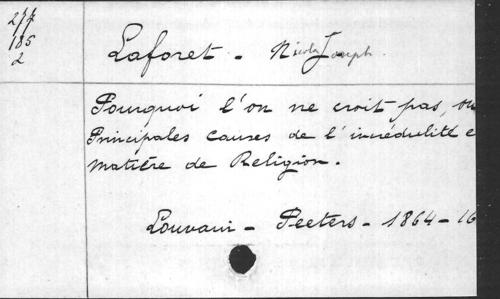 277
185
2
Laforet - Nicola Joseph
Pourquoi l'on ne croit pas, ou
Principales causes de l'incrédulité e
matière de Religion.
Louvain - Peeters - 1864 - 16